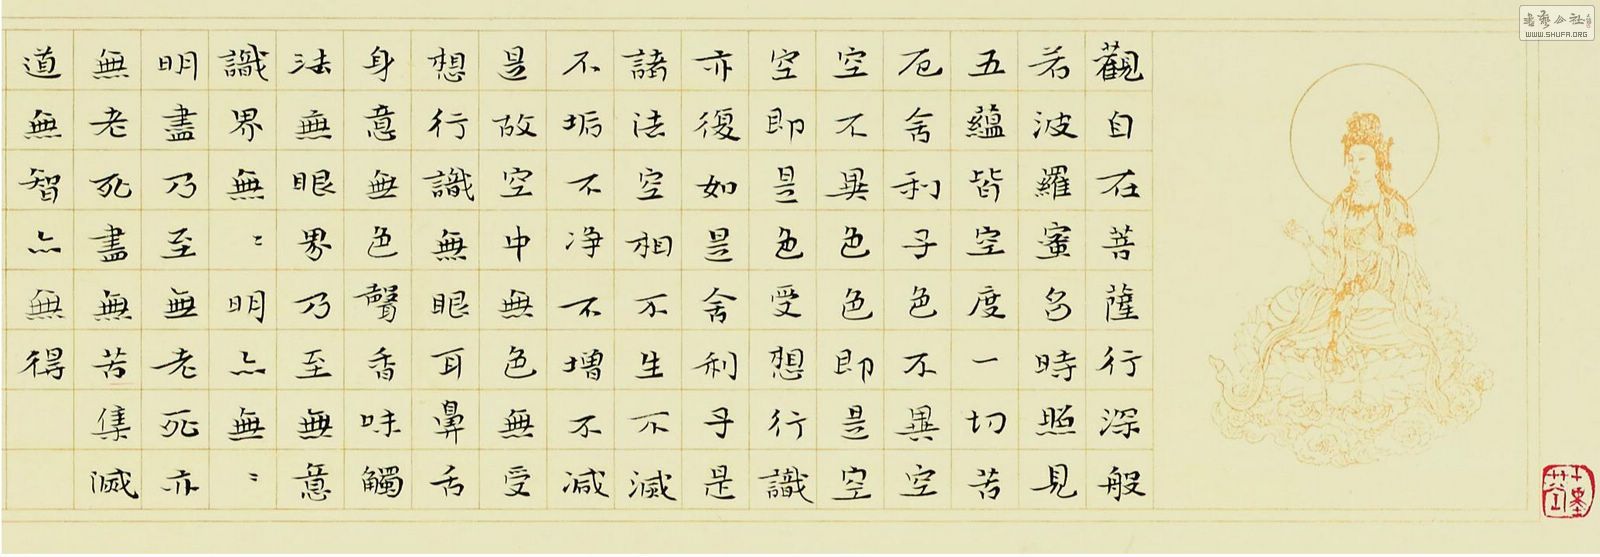 觀自在菩薩行深般
若波羅蜜多時照見
五蘊皆空度一切苦
厄舍利子色不異空
空不異色色即是空
空即是色受想行識
亦復如是舍利子是
諸法空相不生不滅
不垢不净不增不減
是故空中無色無受
想行識無眼耳鼻舌
身意無色聲香味觸
法無眼界乃至無意
識界無〻明亦無〻
明盡乃至無老死亦
無老死盡無苦集滅
道無智亦無得
書藝公社
WWW.SHUFA.ORG